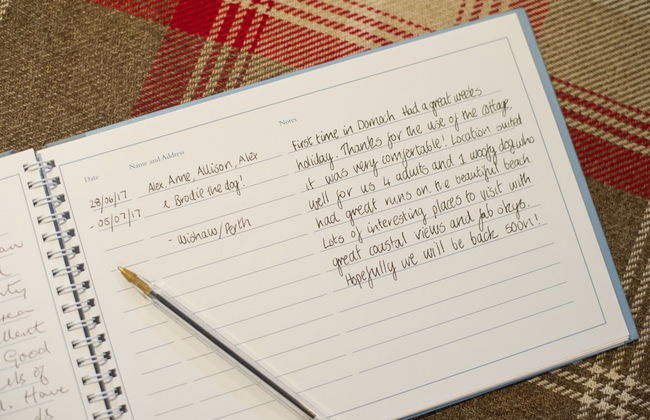 an
d
nty
rea
llent
Good
els of
d. Have
Date
Name and Address
Notes
28/06/17
- 05/07/17
Alex, Anne, Allison, Alex
& Brodie the dog!
- Wishaw/Perth
First time in Dornoch. Had a great weeks
holiday. Thanks for the use of the cottage
it was very comfertable! Location suited
well for us 4 adults and 1 woofy dog who
had great runs on the beautiful beach.
Lots of interesting places to visit with
great coastal views and fab skys.
Hopefully we will be back soon!!